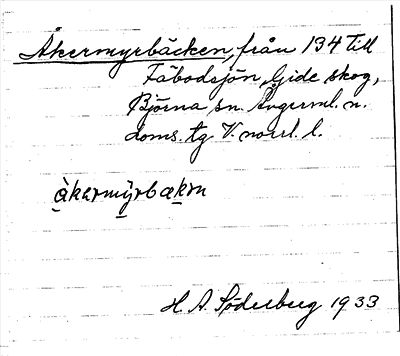 Åkermyrbäcken, från 134 till
Fäbodsjön, Gide skog,
Björna sn. Ångerml. n.
doms. tg V. norrl. l.
àkermỳrbækṛn
H. A. Söderberg 1933